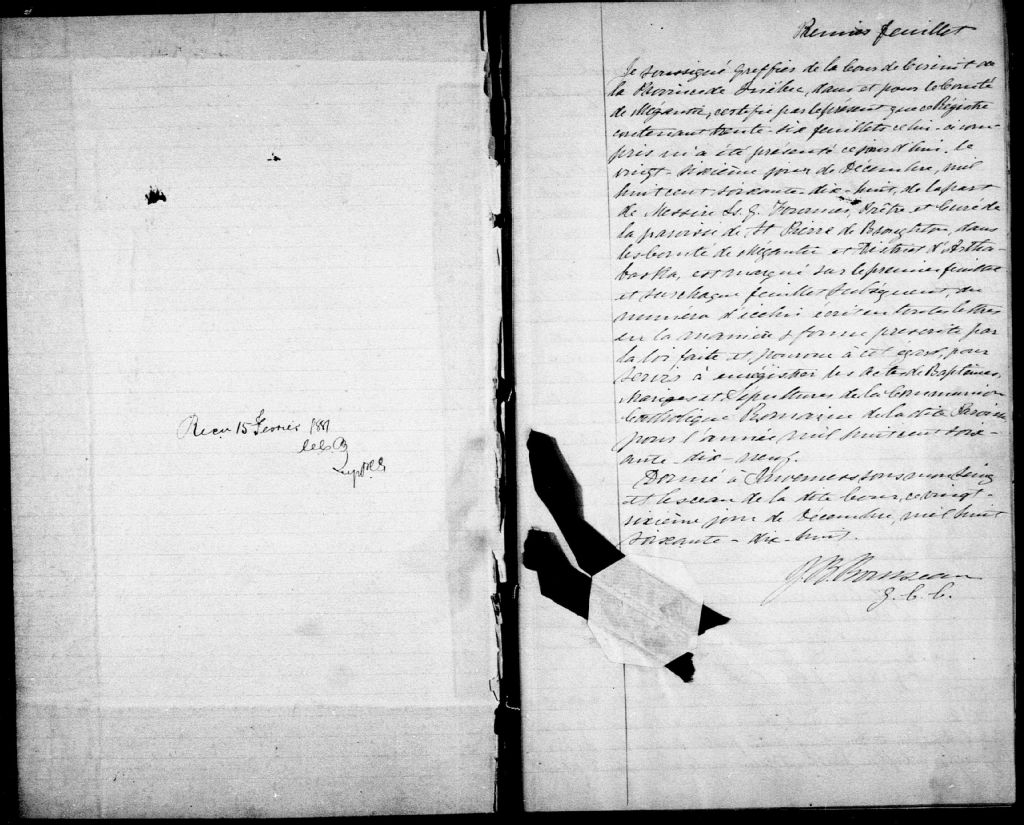 Reçu 15 Février 1881
Premier feuillet
Je soussigné Greffier de la Cour de Circuit de
la Province de Québec, dans et pour le Comté
de Mégantic, certifie par le présent que ce Régistre
contenant trente-six feuillets celui-ci com
pris m'a été présenté ce jourd'hui, le
vingt-sixième jour de Décembre, mil
huit cent soixante-dix-huit, de la part
de Messire Ls. G. Fournier, Prêtre et Curé de
la paroisse de St Pierre de Broughton, dans
le comté de Mégantic et District d'Artha-
baska, est marqué sur le premier feuillet
et sur chaque feuillet subséquent, du
numéro d'icelui écrit en toutes lettres
en la manière & forme prescrite par
la loi faite et pourvue à cet égard, pour
servir à enrégistrer les actes de Baptêmes,
Mariages et Sépultures de la Communion
Catholique Romaine de la dite Paroisse
pour l'année mil huit cent soix-
ante-dix-neuf.
Donné à Inverness sous mon Seing
et le sceau de la dite Cour, ce vingt-
sixième jour de Décembre, mil huit
soixante-dix-huit.
J. B. Rousseau
G. C. C.